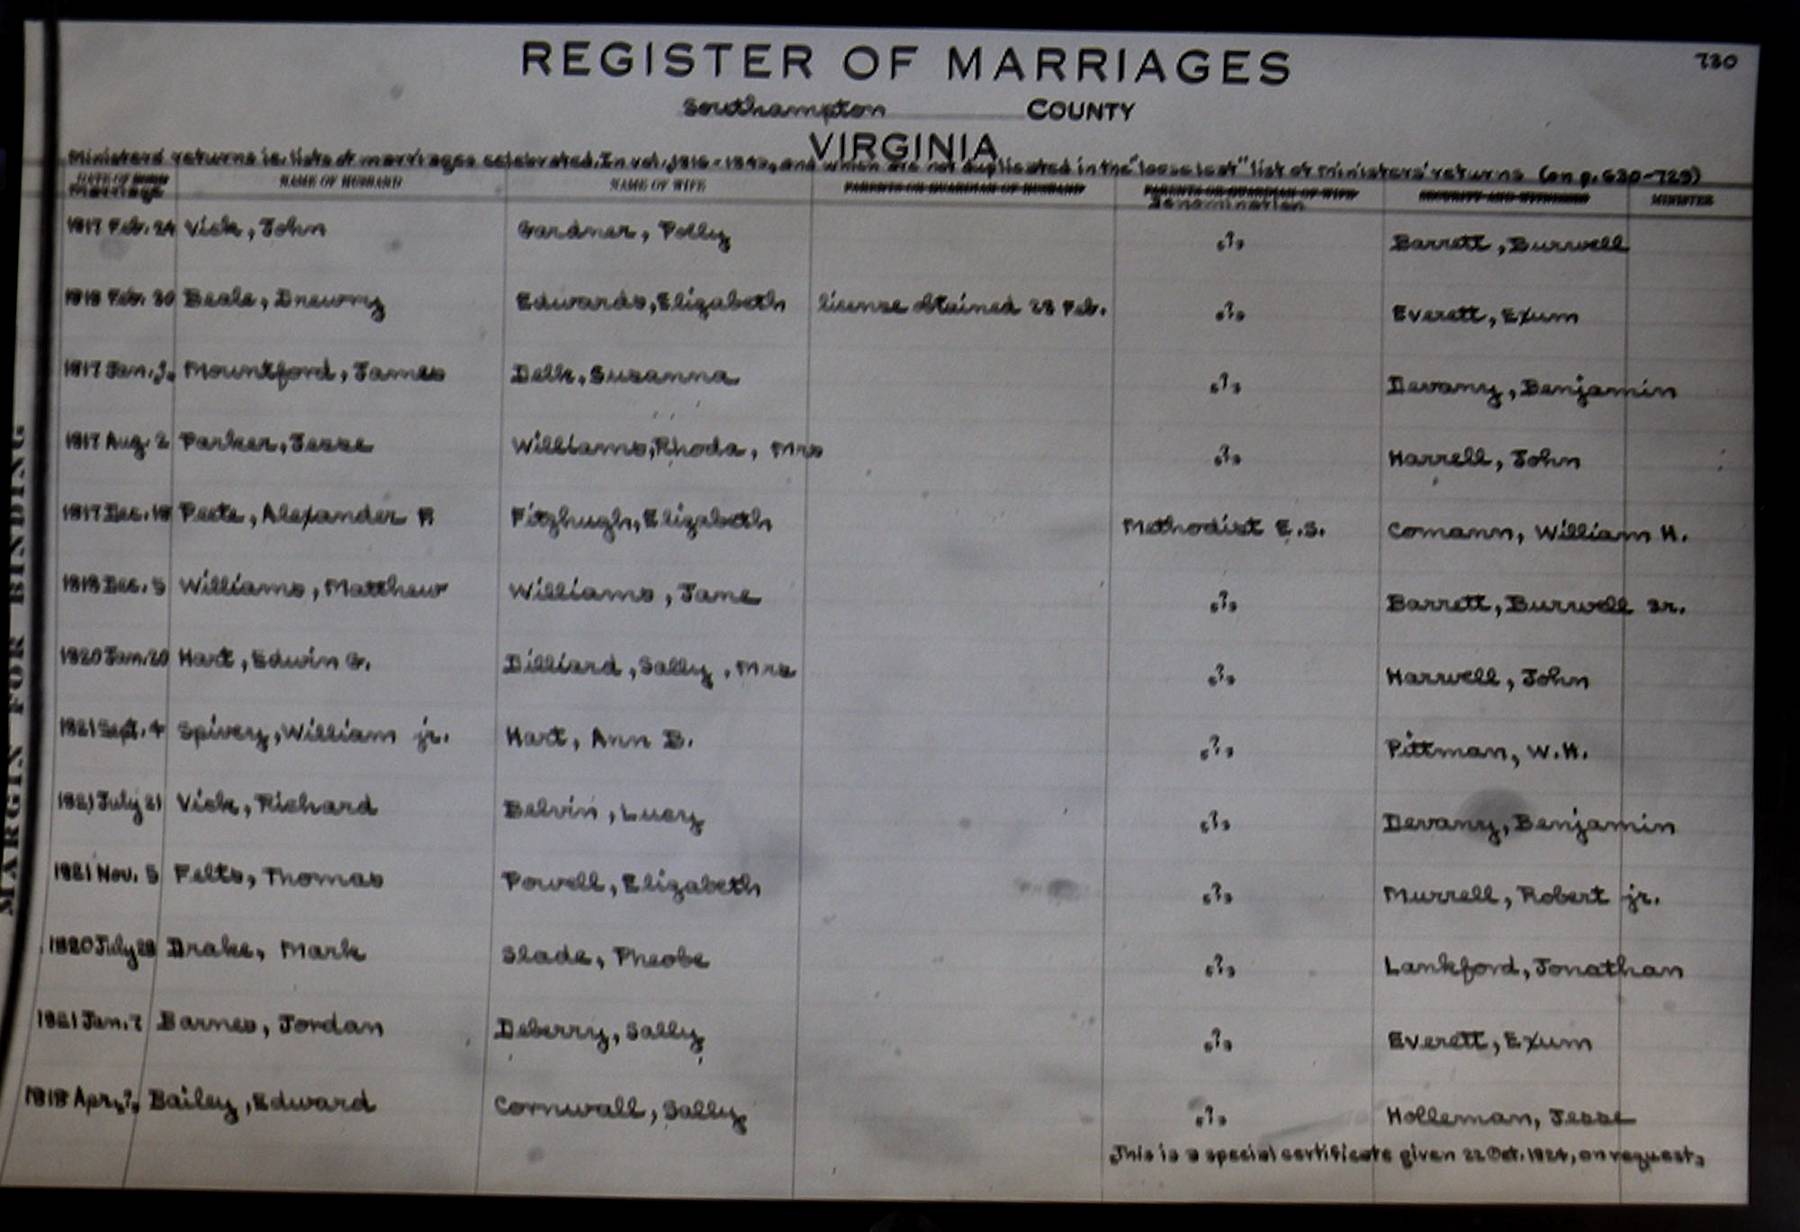 REGISTER OF MARRIAGES 730
Southampton COUNTY
VIRGINIA
Ministers' returns ie. lists of marriages celebrated. In vol. 1816-1842, and which are not duplicated in the "loose leaf" list of ministers' returns (on p. 630-729)
DATE OF BOND NAME OF HUSBAND NAME OF WIFE PARENTS OR GUARDIAN OF HUSBAND PARENTS OR GUARDIAN OF WIFE SECURITY AND WITNESS MINISTER
marriage Denomination
1817 Feb. 24 Vick, John Gardner, Polly ‹?› Barrett, Burwell
1818 Feb. 20 Beale, Drewry Edwards, Elizabeth license obtained 28 Feb. ‹?› Everett, Exum
1817 Jan. Mountford, James Delk, Susanna ‹?› Devany, Benjamin
1817 Aug. 2 Parker, Jesse Williams, Rhoda, Mrs ‹?› Harrell, John
1817 Dec. 18 Peete, Alexander P. Fitzhugh, Elizabeth Methodist E.S. Comann, William H.
1818 Dec. 5 Williams, Matthew Williams, Jane ‹?› Barrett, Burwell sr.
1820 Jan. 20 Hart, Edwin G. Dilliard, Sally, Mrs ‹?› Harwell, John
1821 Sept. 4 Spivey, William jr. Hart, Ann B. ‹?› Pittman, W.H.
1821 July 21 Vick, Richard Belvin, Lucy ‹?› Devany, Benjamin
1821 Nov. 5 Felts, Thomas Powell, Elizabeth ‹?› Murrell, Robert jr.
1820 July 28 Drake, Mark Slade, Pheobe ‹?› Lankford, Jonathan
1821 Jan. 7 Barnes, Jordan Deberry, Sally ‹?› Everett, Exum
1818 Apr. ‹?› Bailey, Edward Cornwall, Sally ‹?› Holleman, Jesse
‹This is a special certificate given 22 Oct. 1824, on request›
MARGIN FOR BINDING